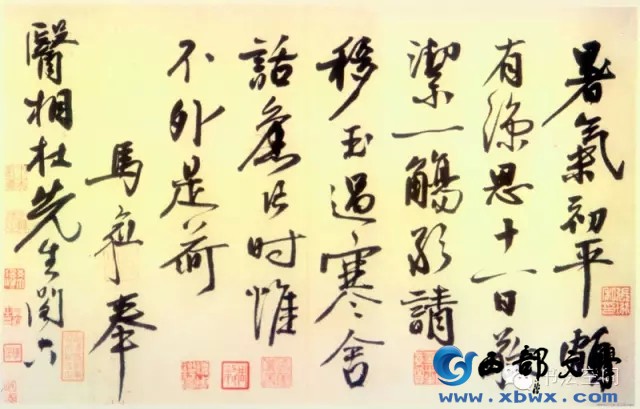 暑氣初平頗
有涼思十一日敬
潔一觴敢請
移玉過寒舍
話舊时惟
不外是荷
馬愈奉
醫相杜先生閣下
西部
书法空间
www.xbwx.com